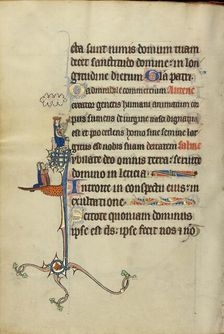 dta sunt nimis domum tuam
decet sanctitudo domine in lon
gitudine dierum Gloria patri
O admirabile commercium Antene
creator generis humani animatum cor
pus sumens de virgine nasci dignatus
est et procedens homo sine semine lar
gitus est nobis suam deitatem
Jubilate deo omnis terra seruite
domino in leticia
Introite in conspectu eius in
exultatione
Scitote quoniam dominus
ipse est deus ipse fecit nos et no